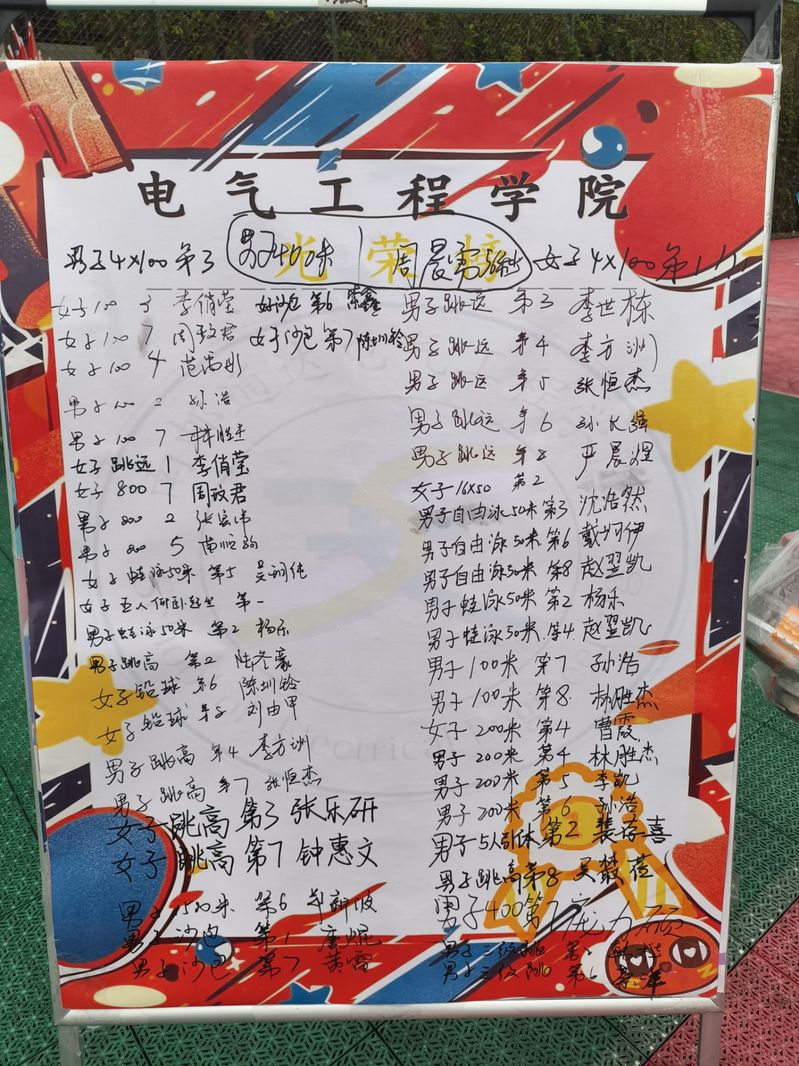 电气工程学院
光荣榜
男子4×100 第3
男子400米
周晨勇
女子4×100 第1
女子100 3 李俏莹
女子100 7 周致君
女子100 4
男子100 2 孙浩
男子100 7 林胜杰
女子跳远 1 李俏莹
女子800 7 周致君
男子800 2 张
男子800 5
女子蛙泳50米 第5 吴
女子五人仰卧起坐 第一
男子蛙泳50米 第2 杨乐
男子跳高 第2 陆齐豪
女子铅球 第6 陈圳铃
女子铅球 第8 刘由甲
男子跳高 第4 李方洲
男子跳高 第7 张恒杰
女子跳高 第3 张乐研
女子跳高 第7 钟惠文
男子1500米 第6
男子沙包 第1 唐焜
男子沙包 第7 黄雷
女子沙包 第6 荣鑫
女子沙包 第7 陈圳铃
男子跳远 第3 李世栋
男子跳远 第4 李方洲
男子跳远 第5 张恒杰
男子跳远 第6 孙长强
男子跳远 第8 严晨煜
女子16×50 第2
男子自由泳50米 第3 沈浩然
男子自由泳50米 第6 戴
男子自由泳50米 第8 赵翌凯
男子蛙泳50米 第2 杨乐
男子蛙泳50米 第4 赵翌凯
男子100米 第7 孙浩
男子100米 第8 林胜杰
女子200米 第4 曹霞
男子200米 第4 林胜杰
男子200米 第5 李凯
男子200米 第6 孙浩
男子5人引体 第2 裴喜
男子跳高 第8 吴
男子400 第7 庞力硕
男子三级跳 第
男子三级跳 第6